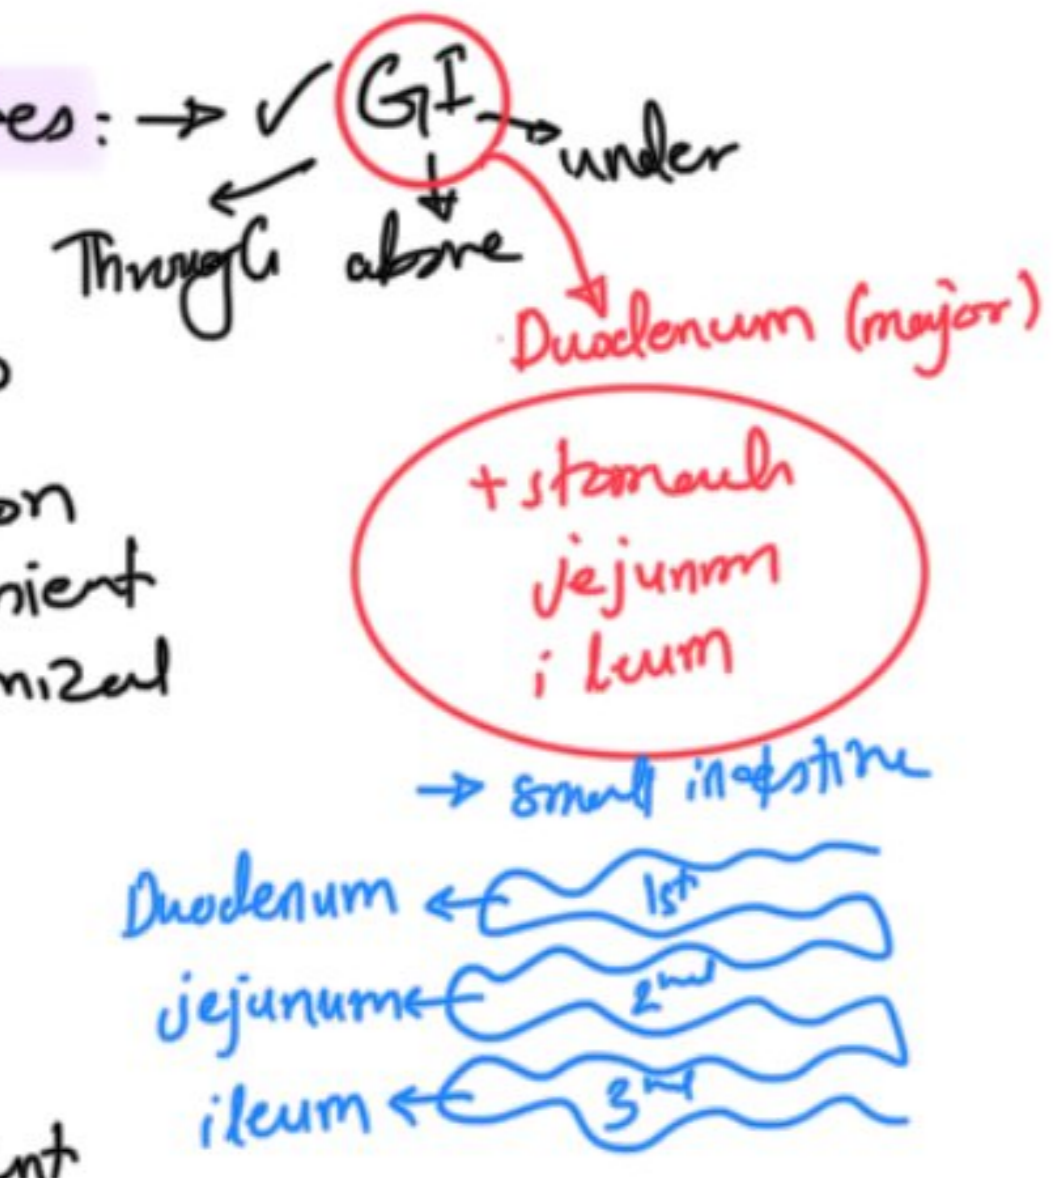 es: → ✓ GI → under
Through above
Duodenum (major)
on
+ stomach
nient
jejunum
nizal
ileum
→ small intestine
Duodenum ← 1st
jejunum ← 2nd
ileum ← 3nd
nt